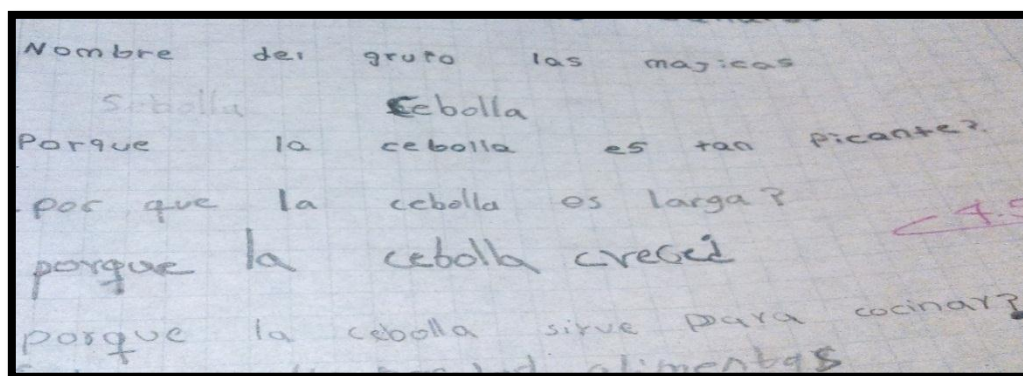 Nombre del grupo las magicas
Sebolla cebolla
Porque la cebolla es tan picante?
por que la cebolla es larga?
porque la cebolla creced
porque la cebolla sirve para cocinar?
alimentas